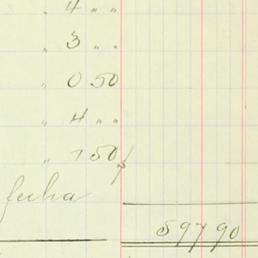 " 4 " "
" 3 " "
" 0 50
" 4 " "
" 1 50
fecha
597 90